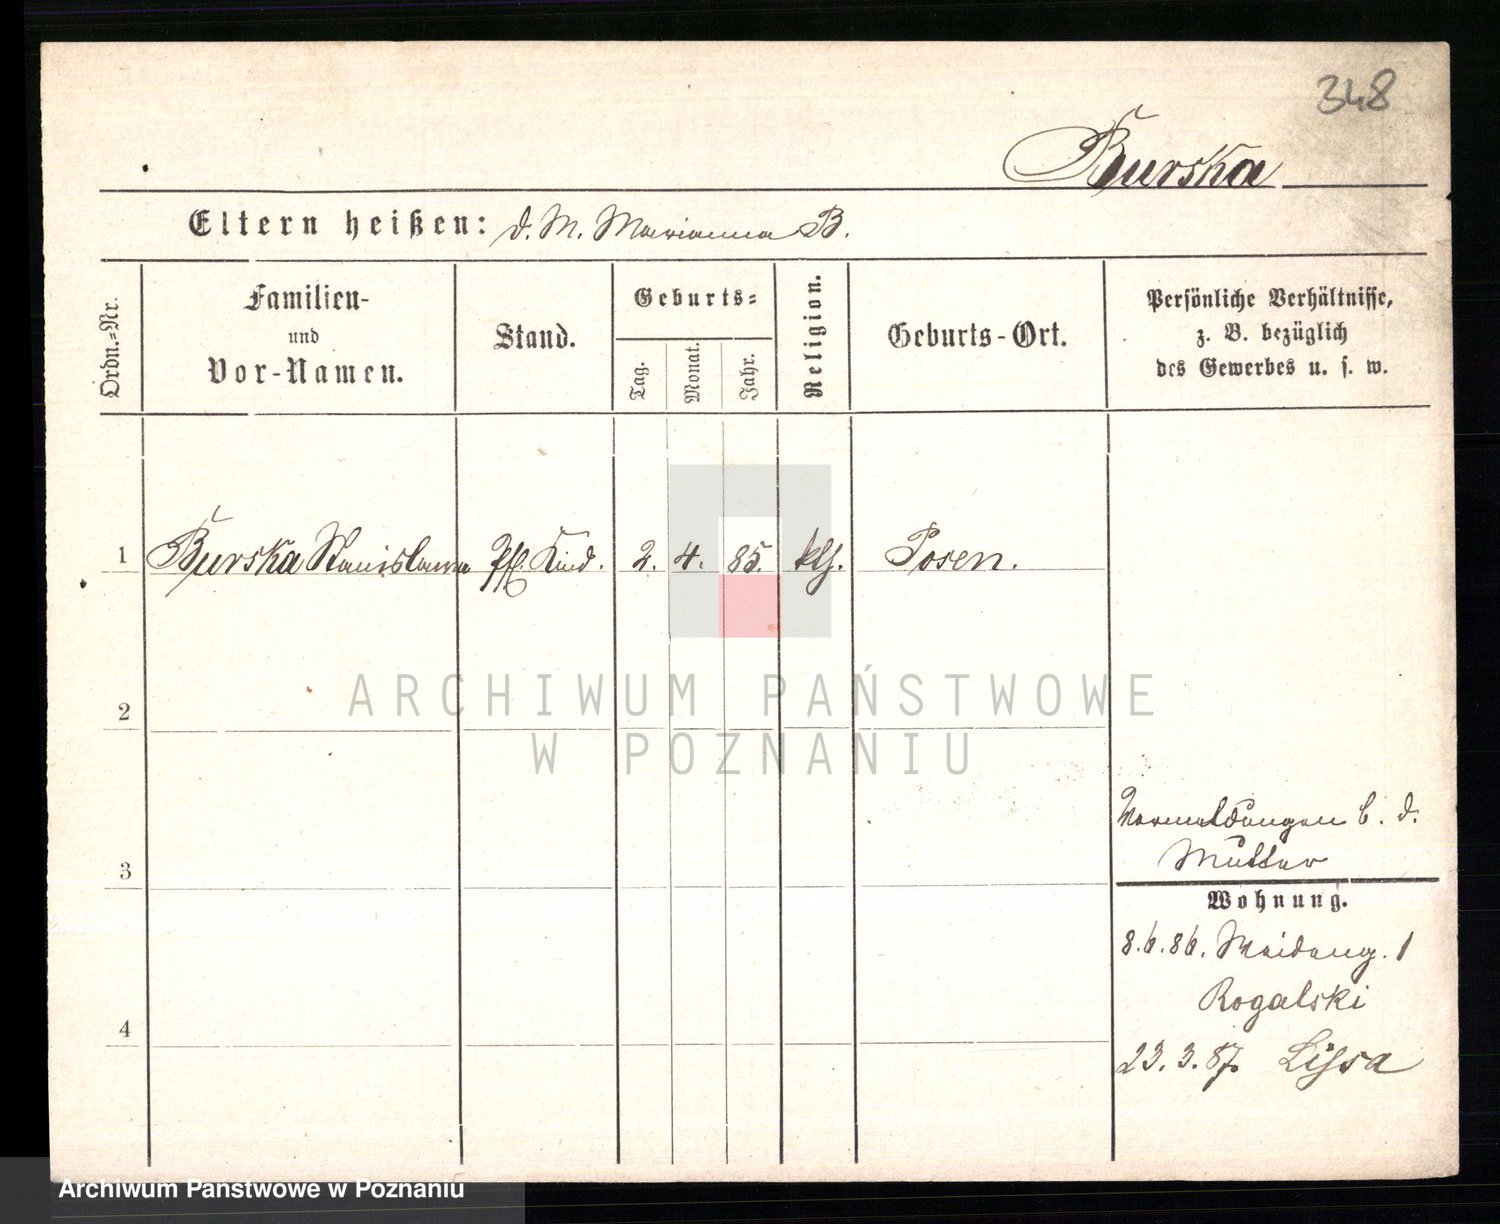 348
Burska
Eltern heißen: d. M. Marianna B.
Ordn.=Nr.
Familien-
und
Vor-Namen.
Stand.
Geburts=
Tag.
Monat.
Jahr.
Religion.
Geburts-Ort.
Persönliche Verhältnisse,
z. B. bezüglich
des Gewerbes u. s. w.
1 Burska Stanislawa Pfl. Kind. 2. 4. 85. klf. Posen.
ARCHIWUM PAŃSTWOWE
W POZNANIU
2
3
4
Vermeldungen b. d.
Mutter
Wohnung.
8.6.86. Weideng. 1
Rogalski
23. 3. 87. Lissa
Archiwum Państwowe w Poznaniu